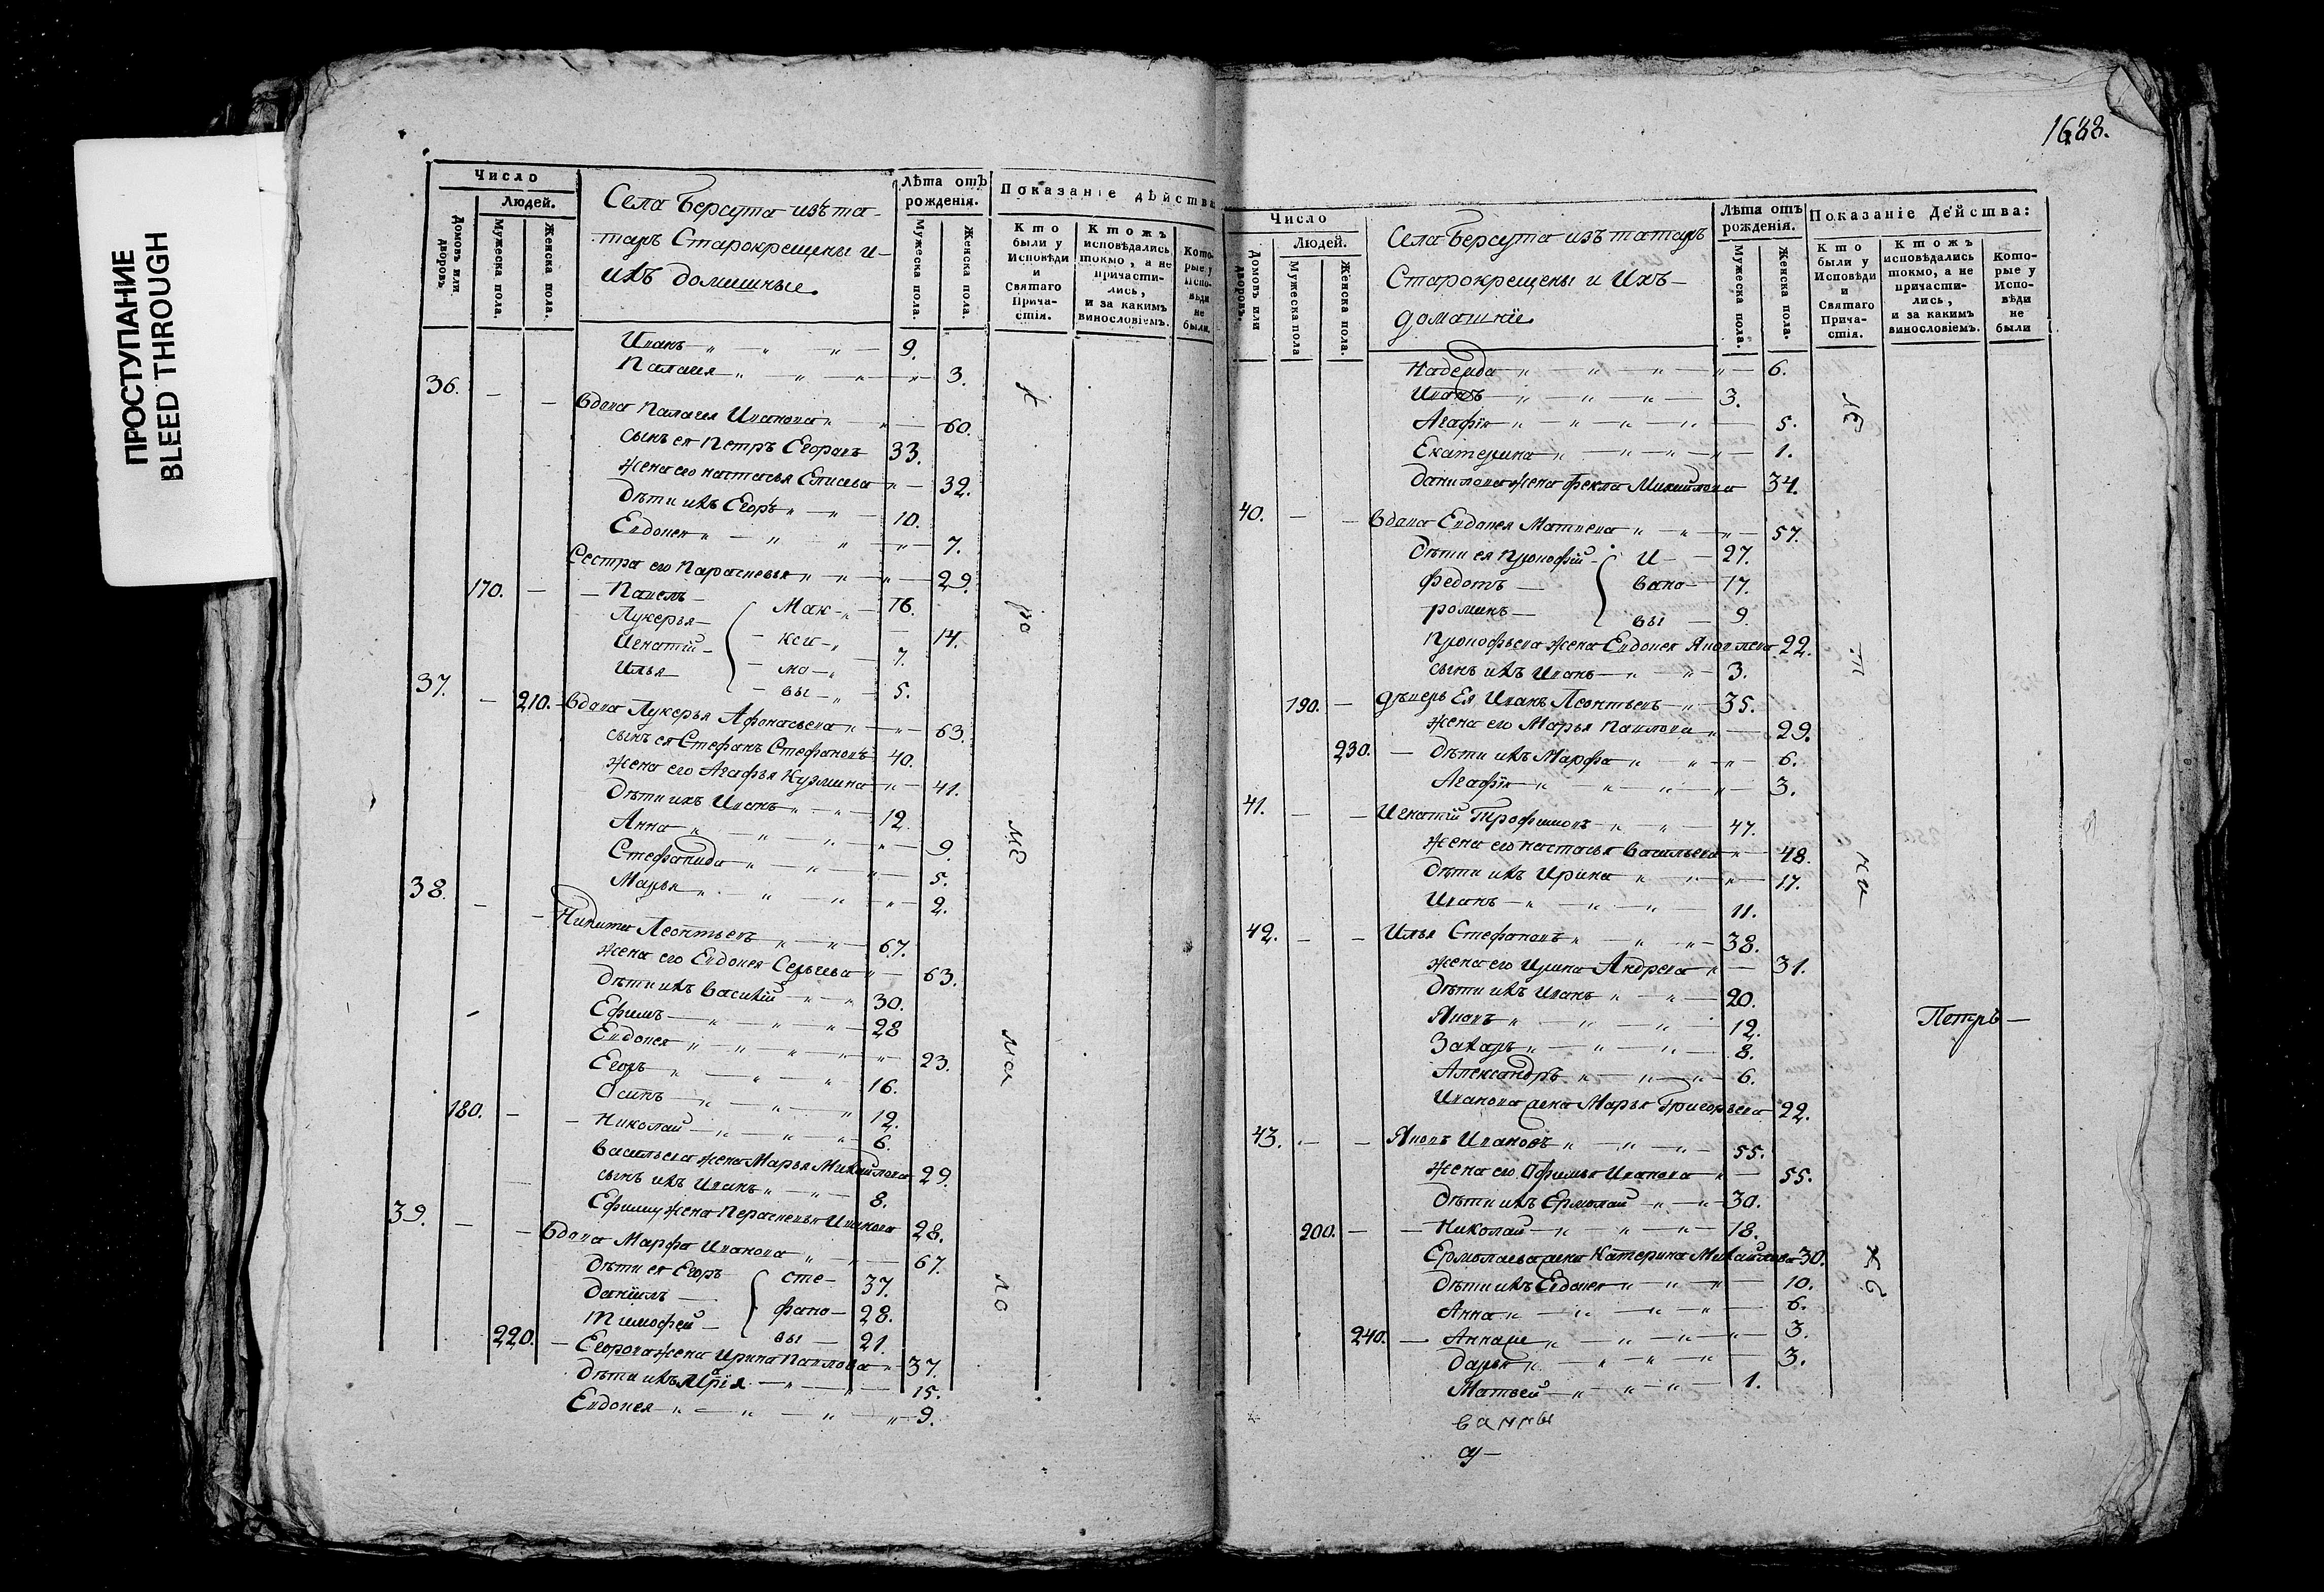 ПРОСТУПАНИЕ
BLEED THROUGH
Число
Людей.
Домовъ или дворовъ.
Мужеска пола.
Женска пола.
Села Берсута изъ та-
таръ Старокрещены и
ихъ домашные
Лѣта отъ рожденія.
Мужеска пола.
Женска пола.
Показаніе дѣйства
Кто были у Исповѣди и Святаго Причастія.
Ктожъ исповѣдались токмо, а не причастились, и за какимъ винословіемъ.
Которые у Исповѣди не были.
Иванъ 9.
Палагея 3.
36. Вдова Палагея Иванова 60.
сынъ ея Петръ Егоровъ 33.
жена его Настасья Елисеева 32.
Дѣти ихъ Егоръ 10.
Евдокея 7.
Сестра его Парасковья 29.
170. Павелъ Мак- 16.
Лукерья - 14.
Игнатій - мо - 7.
Илья - вы - 5.
37. 210. Вдова Лукерья Афонасьева 63.
сынъ ея Стефанъ Стефановъ 40.
жена его Агафья Кузмина 41.
Дѣти ихъ Иванъ 12.
Анна 9.
Стефанида 5.
Марья 2.
38. Никита Леонтьевъ 67.
жена его Евдокея Сергеева 63.
Дѣти ихъ Василій 30.
Ефимъ 28
Евдокея 23.
Егоръ 16.
Осипъ 12.
180. Николай 6.
Васильева жена Марья Михайлова 29.
сынъ ихъ Иванъ 8.
Ефиму жена Персковья Иванова 28.
39. Вдова Марфа Иванова 67.
Дѣти ея Егоръ сте- 37.
Данiилъ фано- 28.
Тимофей вы 21.
220. Егорова жена Ирина Павлова 37.
Дѣти ихъ Мрiя 15.
Евдокея 9.
1688.
Число
Людей.
Домовъ или дворовъ.
Мужеска пола
Женска пола.
Села Берсута изъ татаръ
Старокрещены и Ихъ
домашніе
Лѣта отъ рожденія.
Мужеска пола.
Женска пола.
Показаніе Действа:
Кто были у Исповѣди и Святаго Причастія.
Ктожъ исповѣдались токмо, а не причастились, и за какимъ винословіемъ.
Которые у Исповѣди не были
Надежда 6.
Иванъ 3.
Агафія 5.
Екатерина 1.
Данилова жена Фекла Михайлова 34.
40. Вдова Евдокея Матвеева 57.
Дѣти ея Прокофій И - 27.
Федотъ вано 17.
Романъ вы 9
Прокофьева жена Евдокея Яковлева 22.
сынъ ихъ Иванъ 3.
190. Дѣверь Ея Иванъ Леонтьевъ 35.
жена его Марья Павлова 29.
230. Дѣти ихъ Марфа 6.
Агафія 3.
41. Игнатій Трофимовъ 47.
жена его Настасья Васильева 48.
Дѣти ихъ Ирина 17.
Иванъ 11.
42. Илья Стефановъ 38.
жена его Ирина Андреева 31.
Дѣти ихъ Иванъ 20.
Яковъ 12.
Захаръ 8.
Александръ 6.
Иванова жена Марья Григорьева 22.
43. Яковъ Ивановъ 55.
жена его Офимья Иванова 55.
Дѣти ихъ Ермолай 30.
200. Николай 18.
Ермолаева жена Катерина Михайлова 30.
Дѣти ихъ Евдокея 10.
Анна 6.
240. Анна же 3.
Дарья 3.
Матвей 1.
Петръ